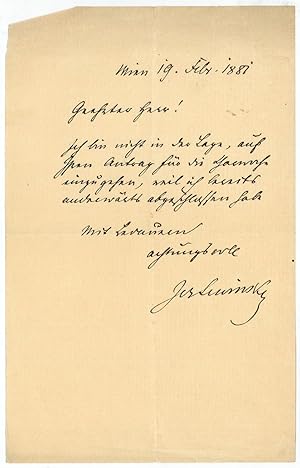 Wien 19. Febr. 1881
Geehrter Herr!
Ich bin nicht in der Lage, auf
Ihren Antrag für die
einzugehen, weil ich bereits
anderwärts abgeschlossen habe
Mit Bedauern
achtungsvoll
Jos Lewinsky